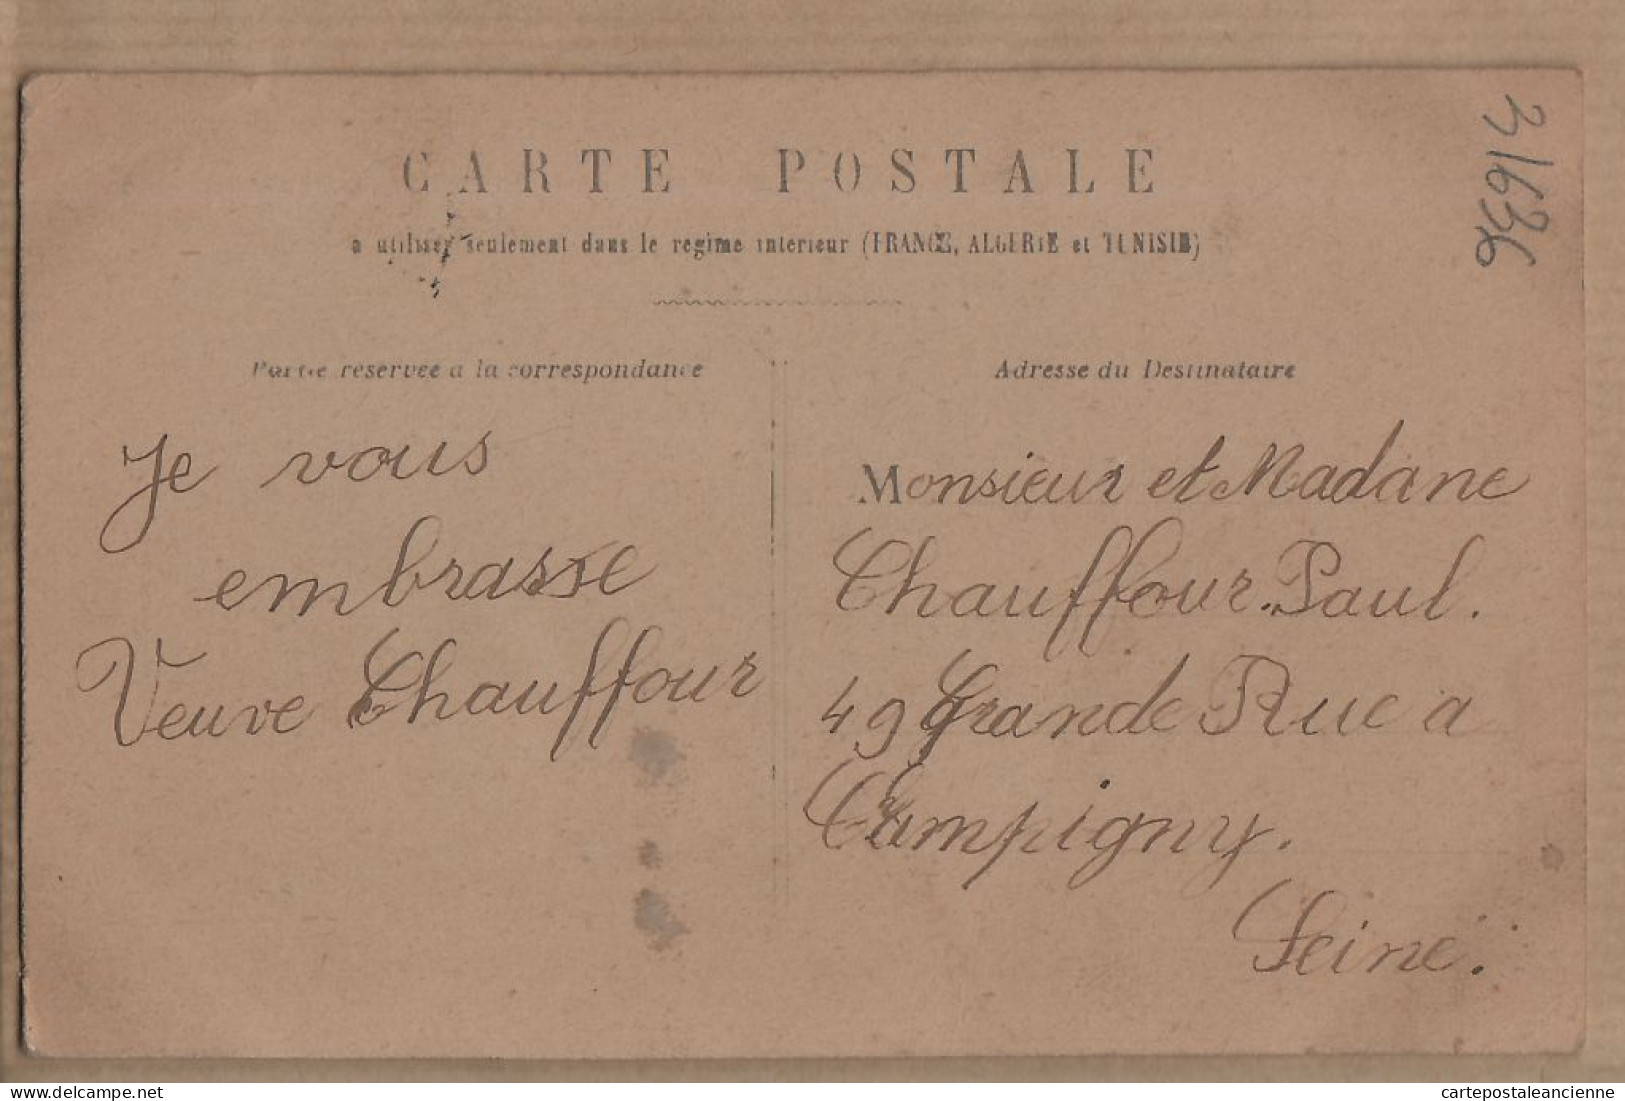 CARTE POSTALE
a utiliser seulement dans le regime interieur (FRANCE, ALGERIE et TUNISIE)
Partie reservee a la correspondance
Je vous
embrasse
Veuve Chauffour
Adresse du Destinataire
Monsieur et Madane
Chauffour. Paul.
49 Grande Rue a
Campigny.
Seine.
delcampe.net
cartepostaleancienne